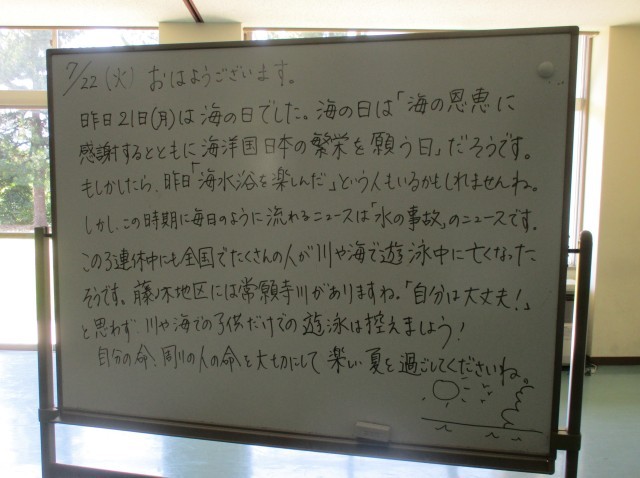 7/22(火) おはようございます。
昨日21日(月)は海の日でした。海の日は「海の恩恵に
感謝するとともに海洋国日本の繁栄を願う日」だそうです。
もしかしたら、昨日「海水浴を楽しんだ」という人もいるかもしれませんね。
しかし、この時期に毎日のように流れるニュースは「水の事故」のニュースです。
この3連休中にも全国でたくさんの人が川や海で遊泳中に亡くなった
そうです。藤ノ木地区には常願寺川がありますね。「自分は大丈夫!」
と思わず川や海での子供だけでの遊泳は控えましょう!
自分の命、周りの人の命を大切にして楽しい夏を過ごしてくださいね。